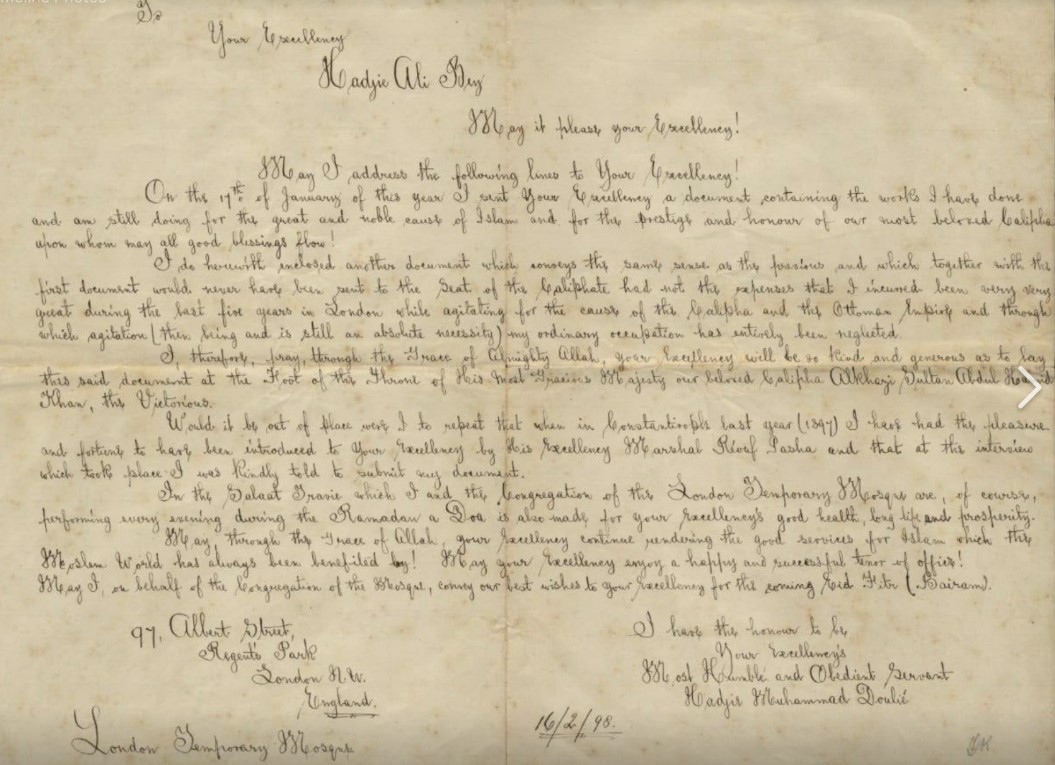 To
Your Excellency
Hadjie Ali Bey
May it please your Excellency!
May I address the following lines to Your Excellency!
On the 17th of January of this year I sent Your Excellency a document containing the works I have done
and am still doing for the great and noble cause of Islam and for the prestige and honour of our most beloved Calipha
upon whom may all good blessings flow!
I do herewith enclosed another document which conveys the same sense as the previous and which together with the
first document would never have been sent to the Seat of the Caliphate had not the expenses that I incured been very very
great during the last five years in London while agitating for the cause of the Calipha and the Ottoman Empire and through
which agitation (then being and is still an absolute necessity) my ordinary occupation has entirely been neglected.
I, therefore, pray, through the Grace of Almighty Allah, your Excellency will be so kind and generous as to lay
this said document at the Foot of the Throne of His Most Gracious Majesty our beloved Calipha Alkhazi Sultan Abdul Hamid
Khan, the Victorious.
Would it be out of place were I to repeat that when in Constantinople last year (1897) I have had the pleasure
and fortune to have been introduced to Your Excellency by His Excellency Marshal Réouf Pasha and that at the interview
which took place I was kindly told to submit my document.
In the Salaat Travie which I and the Congregation of the London Temporary Mosque are, of course,
performing every evening during the Ramadan a Doa is also made for your Excellency's good health, long life and prosperity.
May through the Grace of Allah, your Excellency continue rendering the good services for Islam which the
Moslem World has always been benefited by! May your Excellency enjoy a happy and successful tenor of office!
May I, on behalf of the Congregation of the Mosque, convey our best wishes to your Excellency for the coming Eid Fitr (Bairam).
97, Albert Street,
Regents Park
London N.W.
England.
I have the honour to be
Your Excellency's
Most Humble and Obedient Servant
Hadjie Muhammad Doulie
16/2/98.
London Temporary Mosque